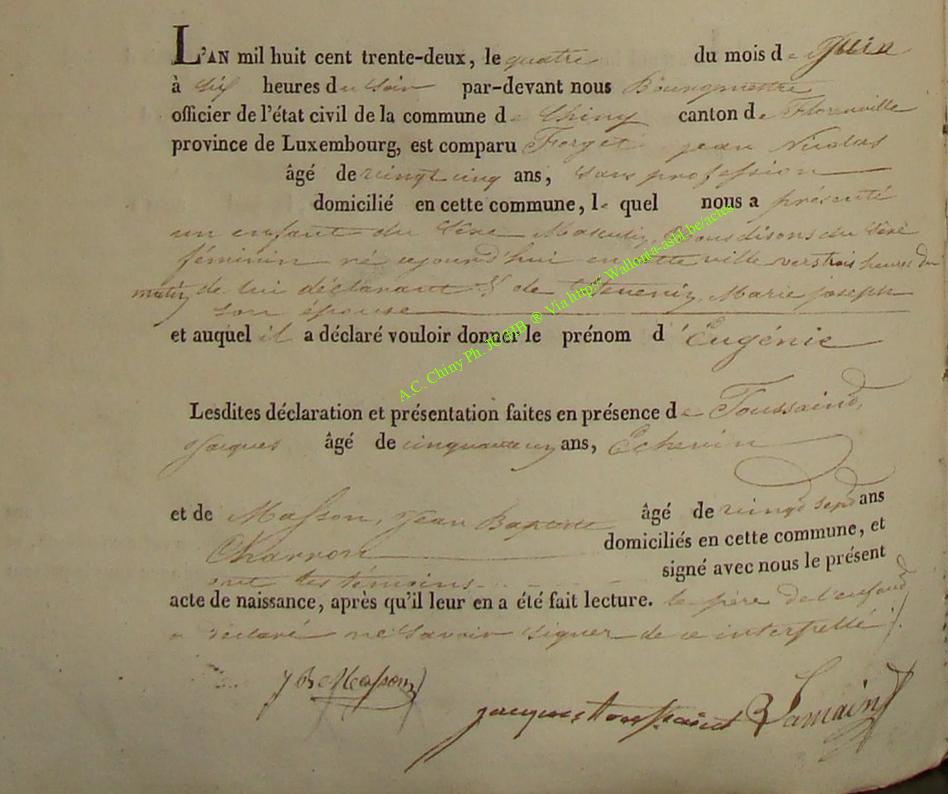 L'AN mil huit cent trente-deux, le quatre du mois de Juin
à six heures du soir par-devant nous Bourgmestre
officier de l'état civil de la commune de Chiny canton de Florenville
province de Luxembourg, est comparu Forget jean Nicolas
âgé de vingt cinq ans, sans profession
domicilié en cette commune, lequel nous a présenté
un enfant du sexe Masculin, Nous disons du sexe
féminin né cejourd'hui en cette ville vers trois heures du
matin de lui déclarant & de Marie Joseph
son épouse
et auquel il a déclaré vouloir donner le prénom d'Eugénie
Lesdites déclaration et présentation faites en présence de Toussaind,
Jacques âgé de cinquante un ans, Echevin
et de Masson, Jean Baptiste âgé de vingd sepd ans
Charron domiciliés en cette commune, et
ont les témoins signé avec nous le présent
acte de naissance, après qu'il leur en a été fait lecture. le père de l'enfand
a déclaré ne savoir signer de ce interpellé
J B Masson
jacques toussaint Lamain
A.C. Chiny Ph. JCHB. ® Via http://Wallonia-asbl.be/actes